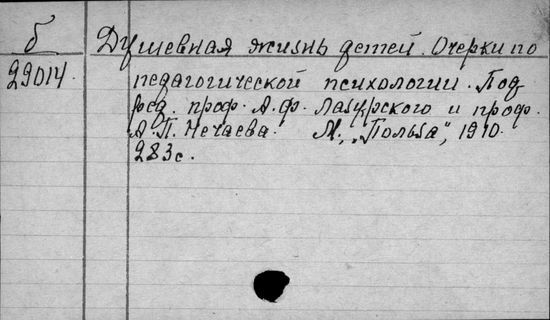 б
29014.
Душевная жизнь детей. Очерки по
педагогической психологии. Под
ред. проф. А.Ф. Лазурского и проф.
А.П. Нечаева. М., „Польза", 1910.
283с.